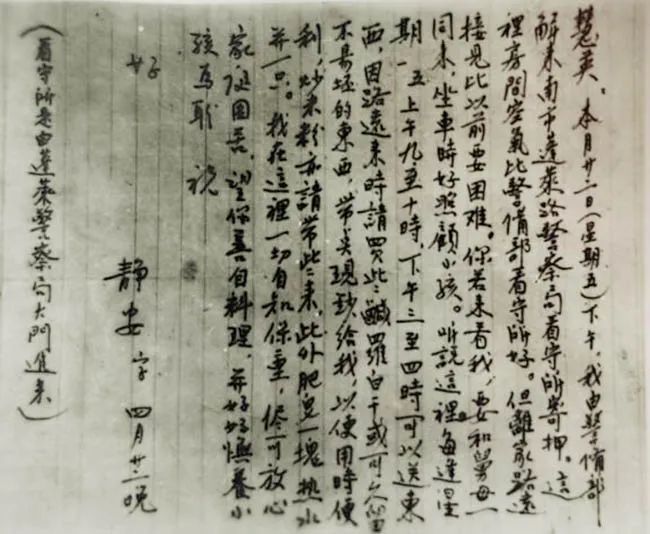 慧英、本月廿二日（星期五）下午，我由警備部
解来南市蓬萊路警察局看守所寄押。這
裡房間空氣比警備部看守所好。但離家路遠
接見比以前要困難。你若来看我，要和舅母一
同来，坐車時好照顧小孩。听說這裡每逢星
期一、五上午九至十時，下午三至四時可以送東
西，因路遠来時請買些鹹羅白干或可久留
不易坯的東西，帶点現鈔給我，以便用時便
利，炒米粉亦請帶些来，此外肥皂一塊热水
并一只。我在這裡一切自知保重，儘可放心
家庭困苦，望你善自料理，并好好撫養小
孩為盼 祝
好
靜安 字 四月廿二晚
（看守所是由蓬萊警察局大門進来）